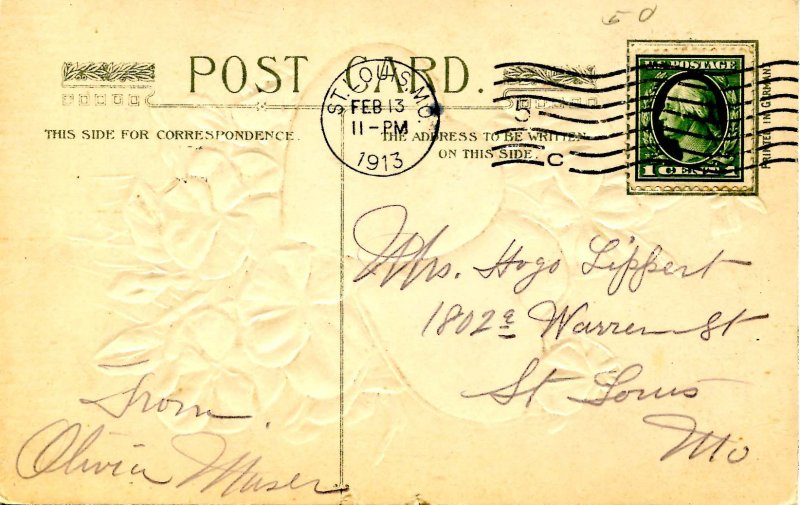 50
POST CARD.
THIS SIDE FOR CORRESPONDENCE.
THE ADDRESS TO BE WRITTEN
ON THIS SIDE.
ST. LOUIS, MO.
FEB 13
11-PM
1913
5
C
U.S. POSTAGE
1 CENTS 1
PRINTED IN GERMANY
Mrs. Hugo Lippert
1802a Warren St
St Louis
Mo
From
Olivia Muser